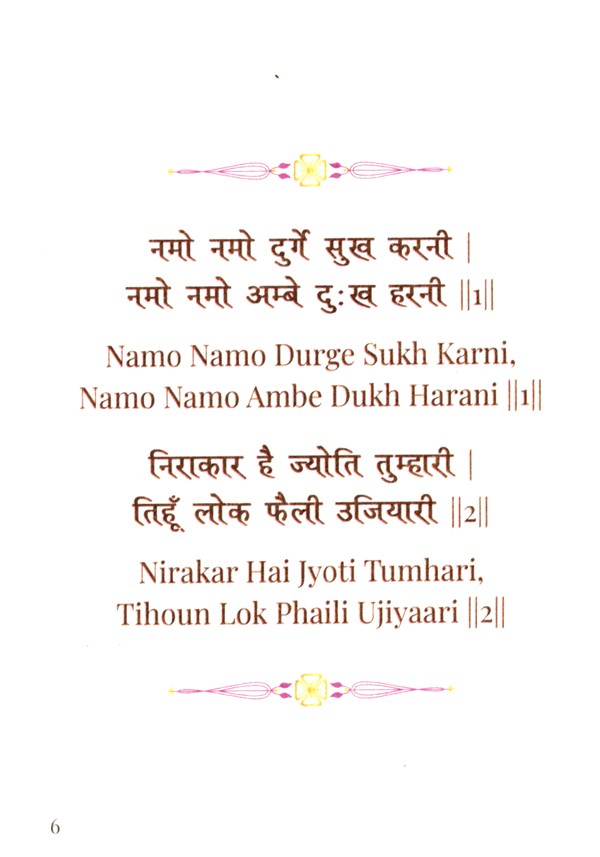 नमो नमो दुर्गे सुख करनी |
नमो नमो अम्बे दुःख हरनी ||1||
Namo Namo Durge Sukh Karni,
Namo Namo Ambe Dukh Harani ||1||
निराकार है ज्योति तुम्हारी |
तिहूँ लोक फैली उजियारी ||2||
Nirakar Hai Jyoti Tumhari,
Tihoun Lok Phaili Ujiyaari ||2||
6